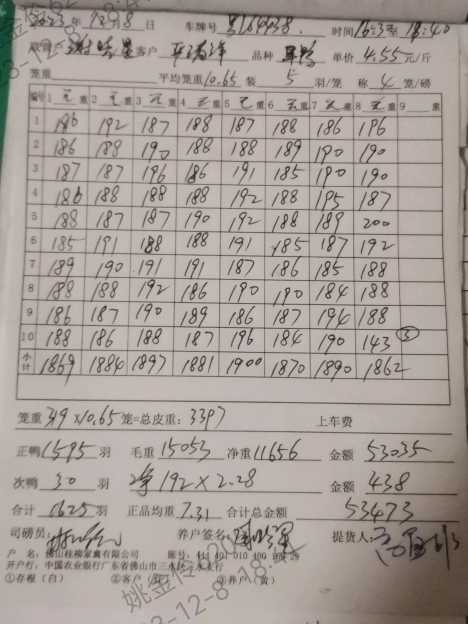 2023年12月8日 车牌号 时间16:3至18:40
客户 品种 单价 4.55元/斤
笼重 平均笼重10.65 装 5 羽/笼 称 4 笼/磅
编号 1 毛重 2 毛重 3 毛重 4 毛重 5 毛重 6 毛重 7 毛重 8 毛重 9 重
1 186 192 187 188 187 188 186 196
2 186 188 190 188 188 189 190 190
3 187 187 196 186 191 185 190 190
4 186 188 188 188 192 188 195 187
5 188 187 187 190 192 188 189 200
6 185 191 188 188 191 185 187 192
7 189 190 191 191 187 186 185 188
8 188 188 192 186 190 190 184 188
9 186 187 190 189 186 187 194 188
10 188 186 188 187 196 184 190 143 ③
小计 1869 1884 1897 1881 1900 1870 1890 1862
笼重319×10.65笼=总皮重:3397 上车费
正鸭1595羽 毛重15053 净重11656 金额 53035
次鸭 30 羽 净192×2.28 金额 438
合计 1625羽 正品均重 7.31 合计总金额 53473
司磅员: 养户签名: 提货人:
户 名:佛山桂柳家禽有限公司 账号:
开户行:中国农业银行广东省佛山市三水
①存根(白) ②客户(红) ③养户(黄)